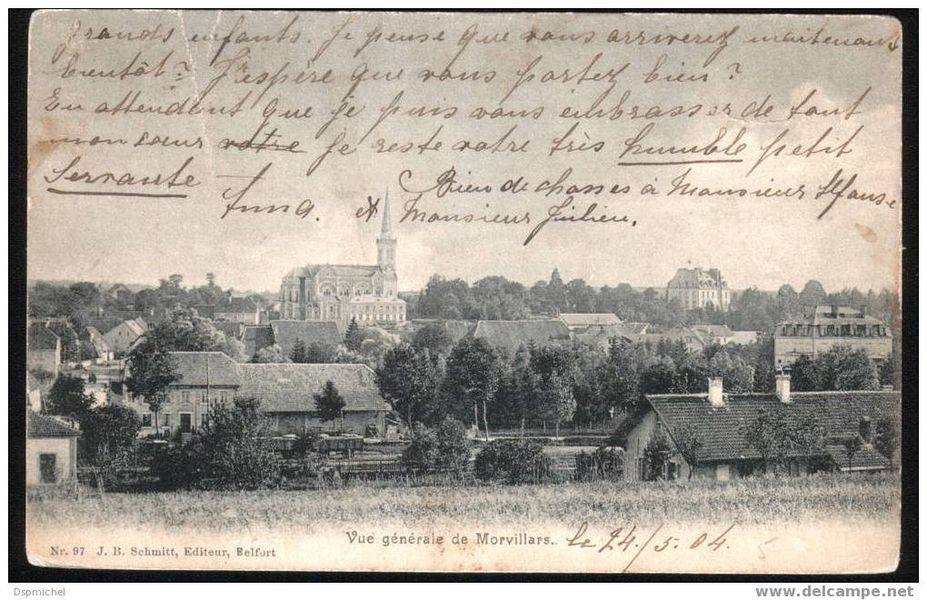 grands enfants. Je pense que vous arriverez maitenant
bientôt? J'espère que vous portez bien?
En attendent que je puis vous embrasser de tout
mon cœur votre je reste votre très humble petit
Servante Anna. Bien de choses à Monsieur Alfonse
et Monsieur Julien.
Vue générale de Morvillars. le 24/5. 04.
Nr. 97 J. B. Schmitt, Editeur, Belfort
Dspmichel
www.delcampe.net